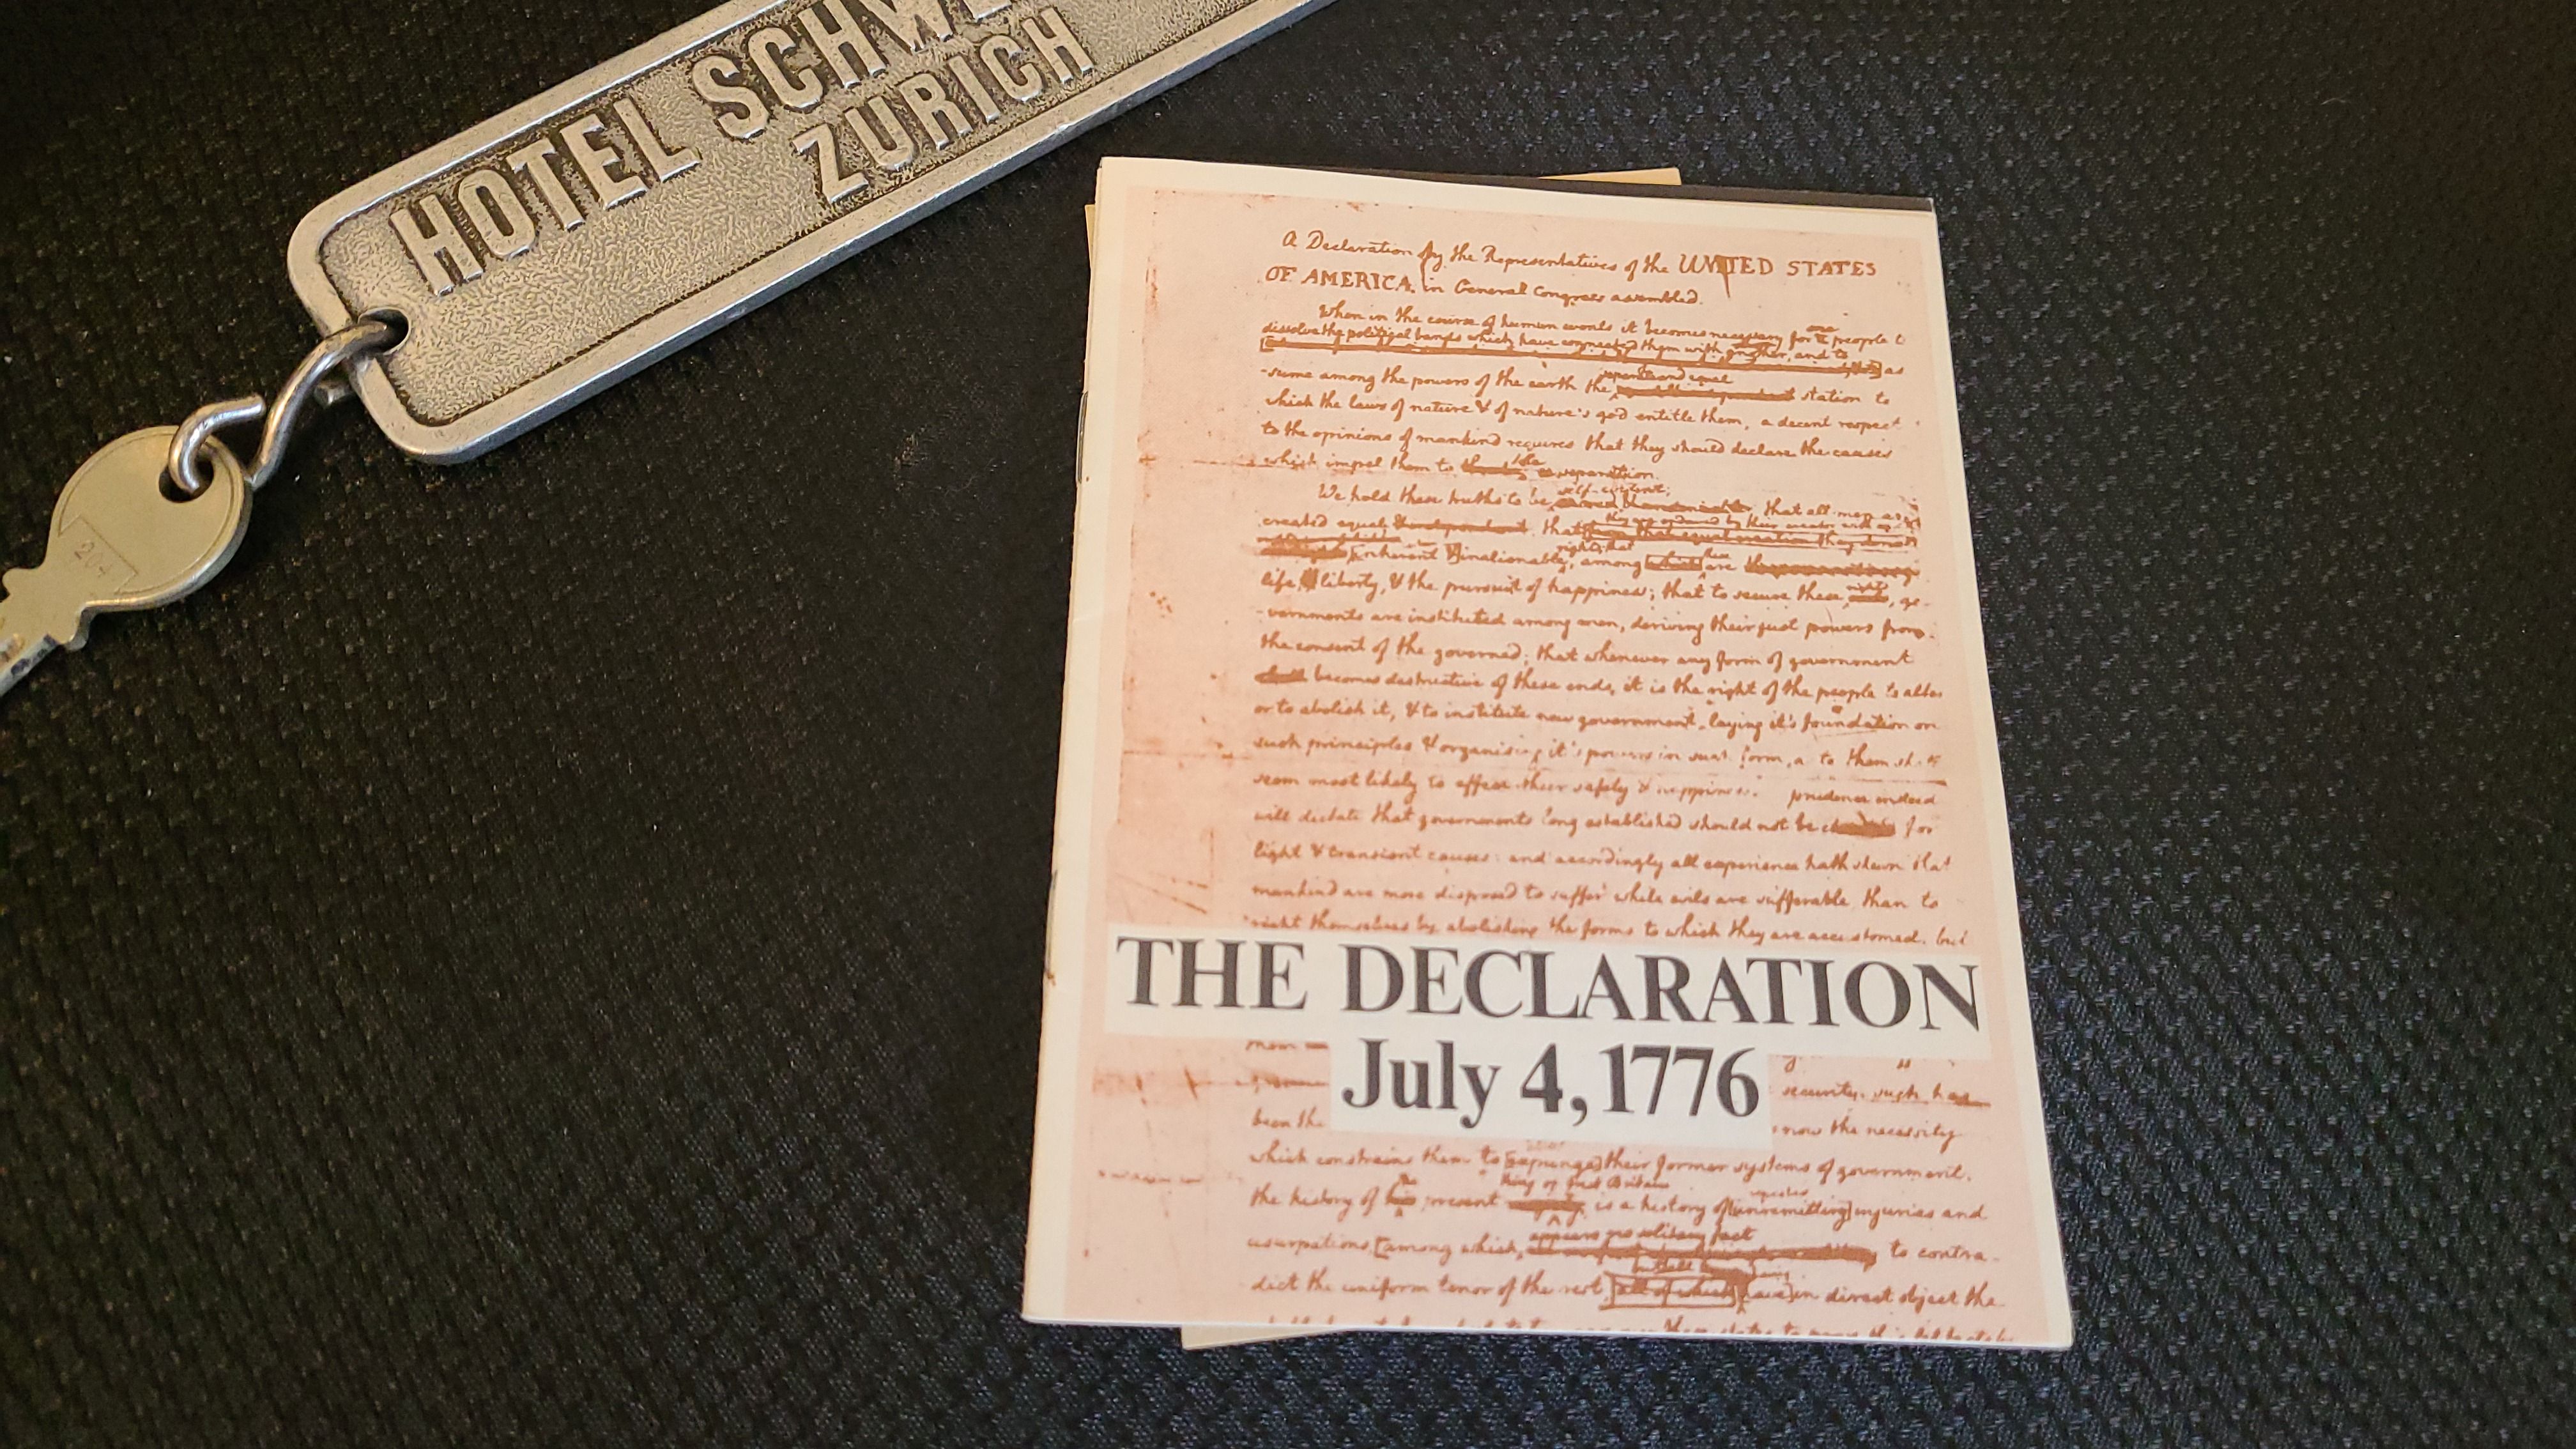 HOTEL SCHWE
ZURICH
204
A Declaration by the Representatives of the UNITED STATES
OF AMERICA, in General Congress assembled.
When in the course of human events it becomes necessary for one people t
dissolve the political bands which have connected them with another, and to
as
separate and equal
-sume among the powers of the earth the station to
which the laws of nature & of nature's god entitle them, a decent respect
to the opinions of mankind requires that they should declare the causes
the
which impel them to separation.
self-evident;
We hold these truths to be that all men are
created equal & independent that
rights; that
inherent & inalienable among which are
life, liberty, & the pursuit of happiness; that to secure these rights, go-
-vernments are instituted among men, deriving their just powers from
the consent of the governed; that whenever any form of government
becomes destructive of these ends, it is the right of the people to alter
or to abolish it, & to institute new government, laying it's foundation on
such principles & organising it's powers in such form, as to them sh
seem most likely to effect their safety & happiness. prudence indeed
will dictate that governments long established should not be changed for
light & transient causes: and accordingly all experience hath shewn that
mankind are more disposed to suffer while evils are sufferable, than to
right themselves by abolishing the forms to which they are accustomed. but
THE DECLARATION
July 4, 1776
security. such has
been the now the necessity
which constrains them to [expunge] their former systems of government.
king of Great Britain
the history of the present is a history of [unremitting] injuries and
appears no solitary fact
usurpations, [among which, to contra-
dict the uniform tenor of the rest, [all of which] [have] in direct object the